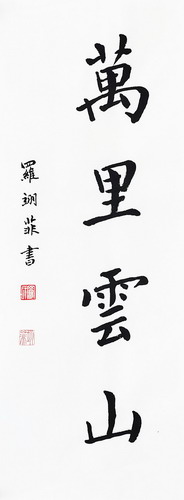 萬里雲山
羅翊菲書